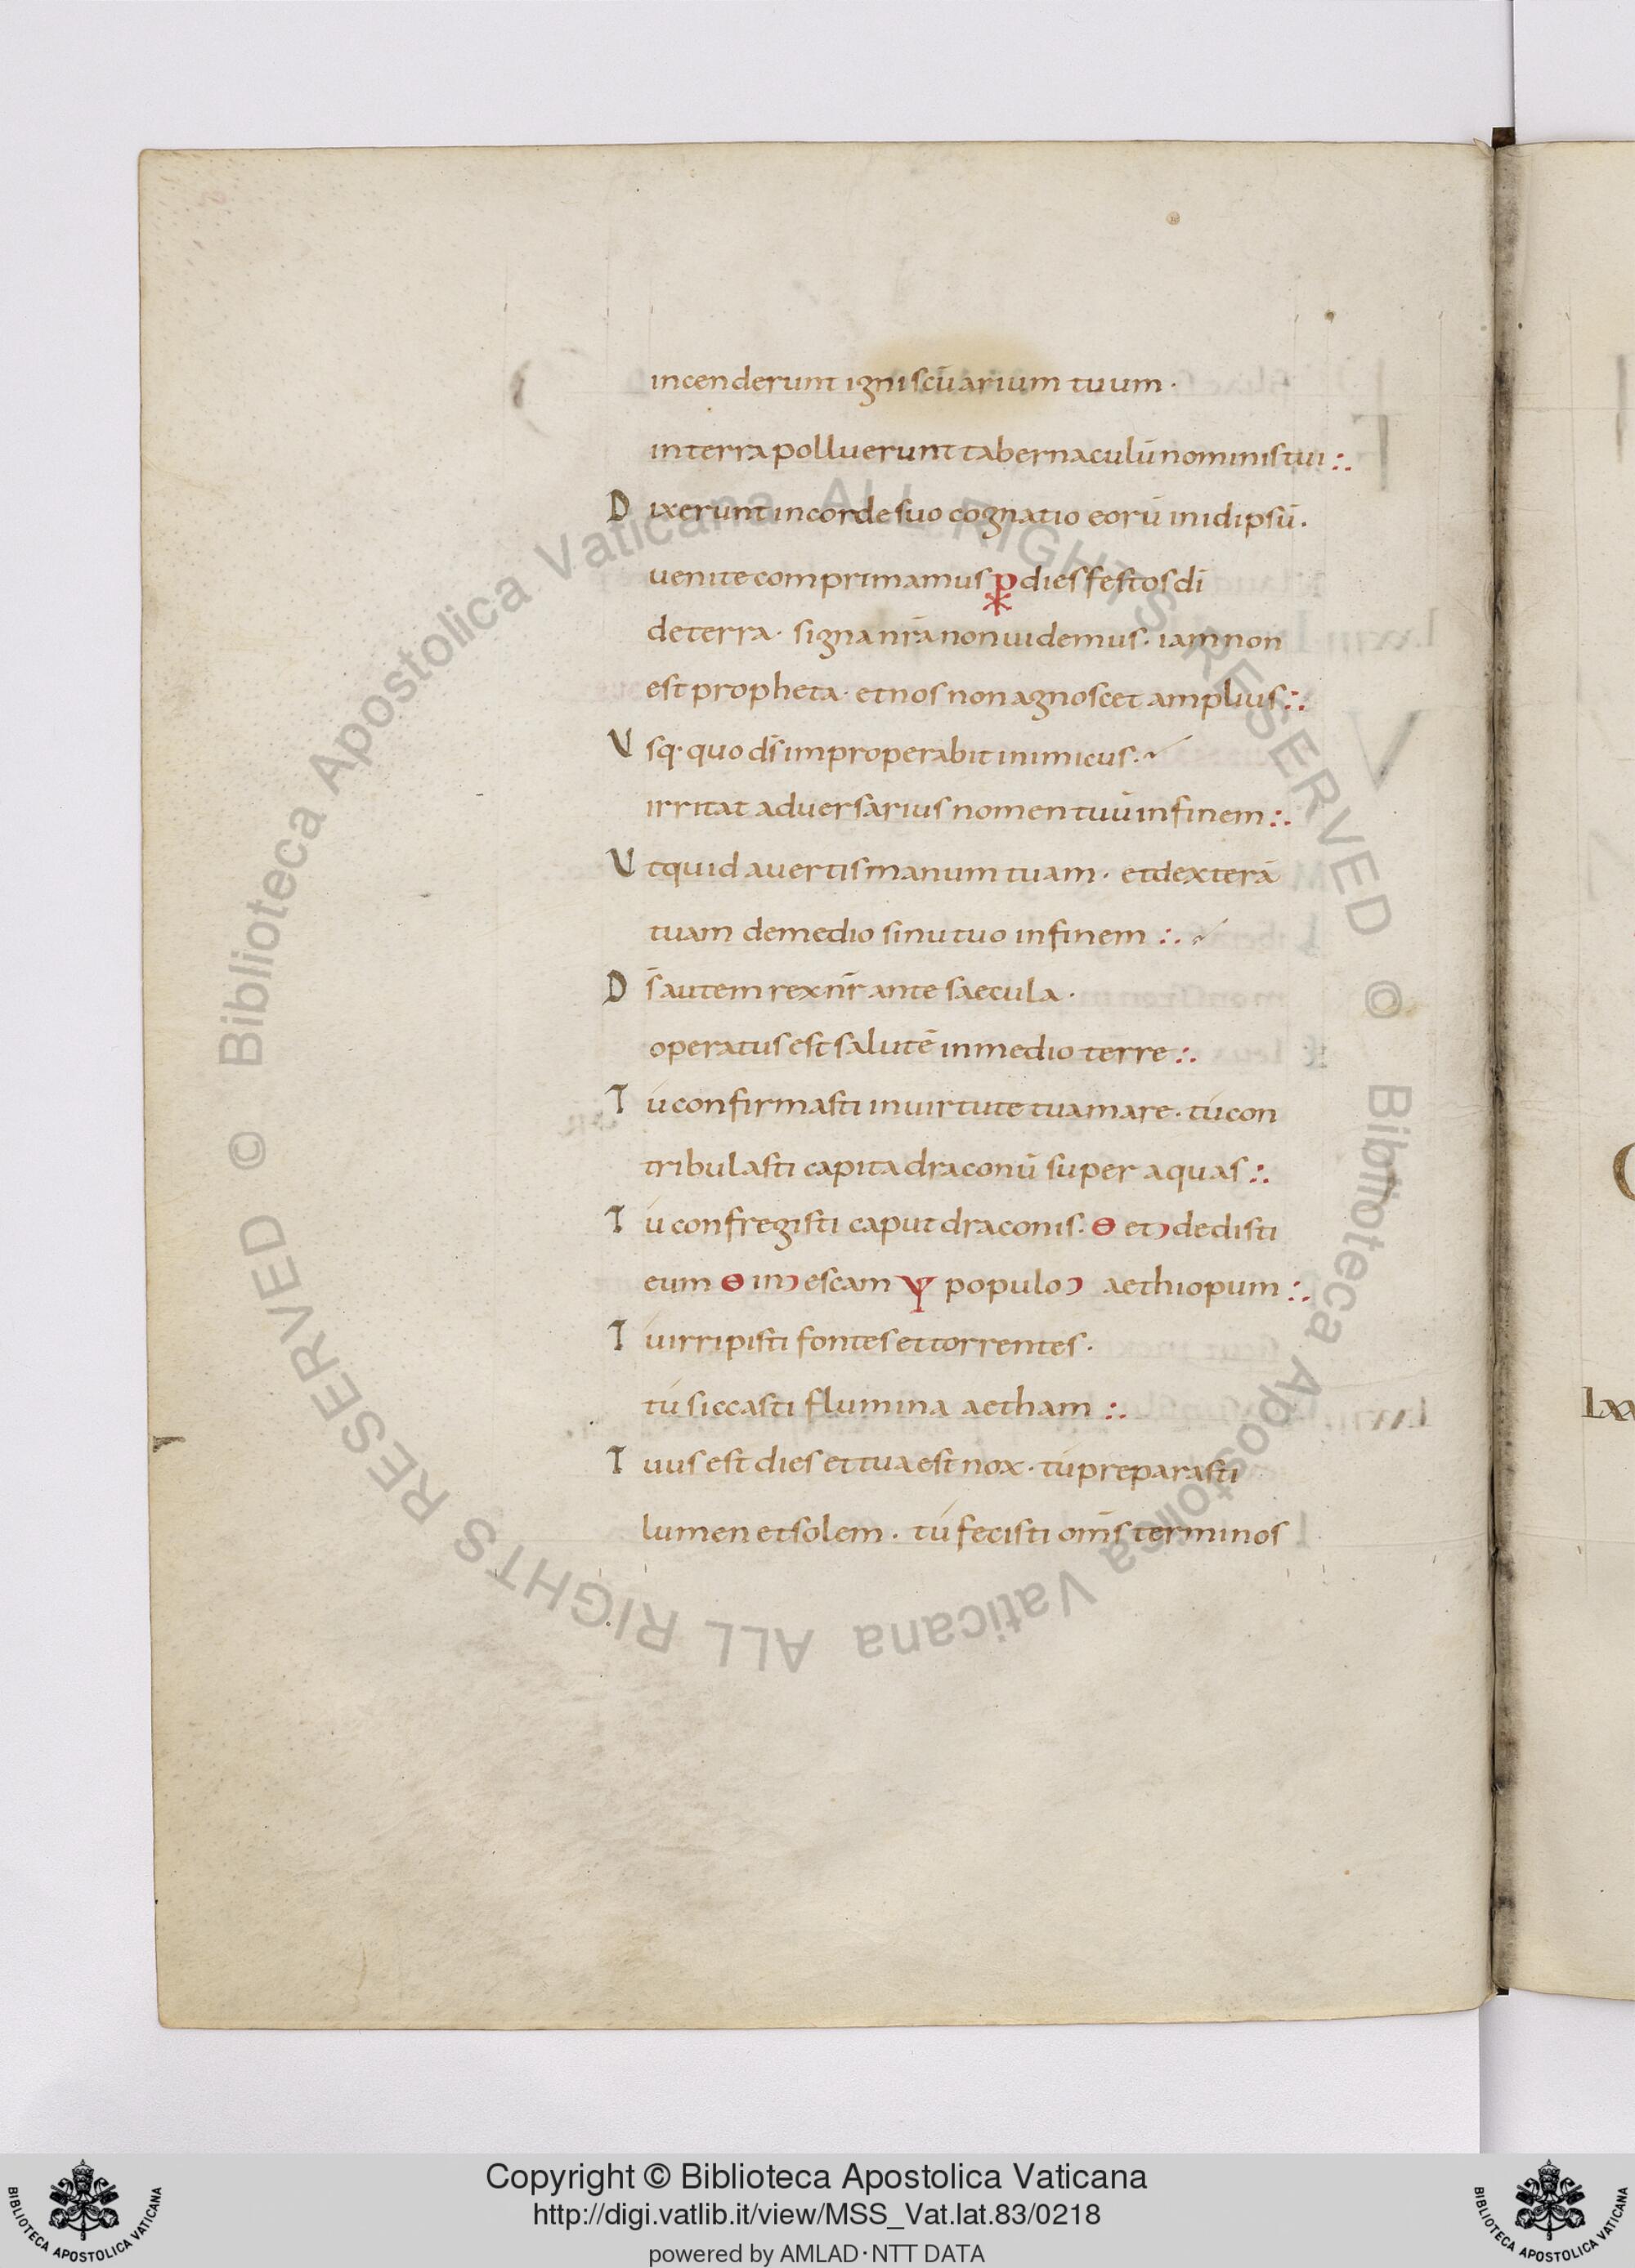 incenderunt igni scūarium tuum ·
in terra polluerunt tabernaculū nominis tui :.
Dixerunt in corde suo cognatio eorū in idipsū.
uenite comprimamus dies festos dī
de terra · signa nr̄a non uidemus · iam non
est propheta · et nos non agnoscet amplius :.
Vsq· quo ds̄ improperabit inimicus ·
irritat aduersarius nomen tuū in finem :.
Vtquid auertis manum tuam · et dexterā
tuam de medio sinu tuo in finem :.
Ds̄ autem rex nr̄ ante saecula ·
operatus est salutē in medio terre :.
Tu confirmasti in uirtute tua mare · tu con
tribulasti capita draconū super aquas :.
Tu confregisti caput draconis · Ө et ͻ dedisti
eum Ө in ͻ escam Ψ populo ͻ aethiopum :.
Tu irripisti fontes et torrentes ·
tu siccasti flumina aetham :.
Tuus est dies et tua est nox · tu preparasti
lumen et solem · tu fecisti om̄s terminos
Lxx
© Biblioteca Apostolica Vaticana ALL RIGHTS RESERVED © Biblioteca Apostolica Vaticana ALL RIGHTS RESERVED
Copyright © Biblioteca Apostolica Vaticana
http://digi.vatlib.it/view/MSS_Vat.lat.83/0218
powered by AMLAD·NTT DATA
BIBLIOTECA APOSTOLICA VATICANA
BIBLIOTECA APOSTOLICA VATICANA